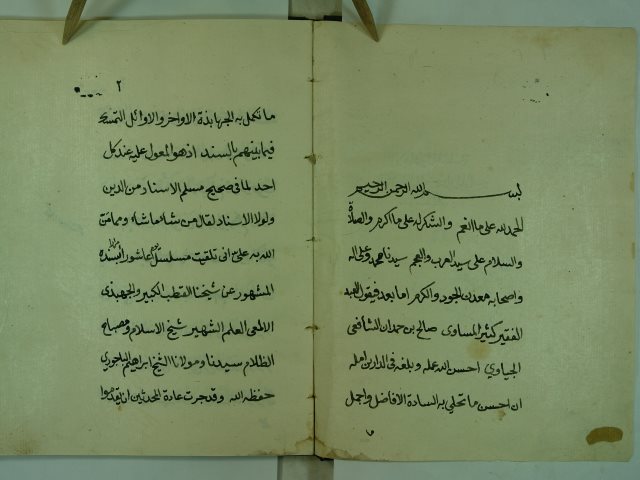 بسم الله الرحمن الرحيم
الحمد لله على ما انعم والشكر له على ما اكرم والصلاة
والسلام على سيد العرب والعجم سيدنا محمد وعلى اله
واصحابه معدن الجود والكرم اما بعد فيقول العبد
الفقير كثير المساوى صالح بن حمدان الشافعى
الجياوي احسن الله عمله وبلغه فى الدارين امله
ان احسن ما تحلي به السادة الافاضل واجمل
٢
ما تكمل به الجهابذة الاواخر والاوائل التمسك
فيما بينهم بالسند اذ هو المعول عليه عند كل
احد لما فى صحيح مسلم الاسناد من الدين
ولولا الاسناد لقال من شاء ما شاء ومما من
الله به على انى تلقيت مسلسل عاشوراء بسنده
المشهور عن شيخنا القطب الكبير والجهبذى
الالمعى العلم الشهير شيخ الاسلام ومصباح
الظلام سيدنا ومولانا الشيخ ابراهيم الباجوري
حفظه الله وقد جرت عادة المحدثين ان يقدموا